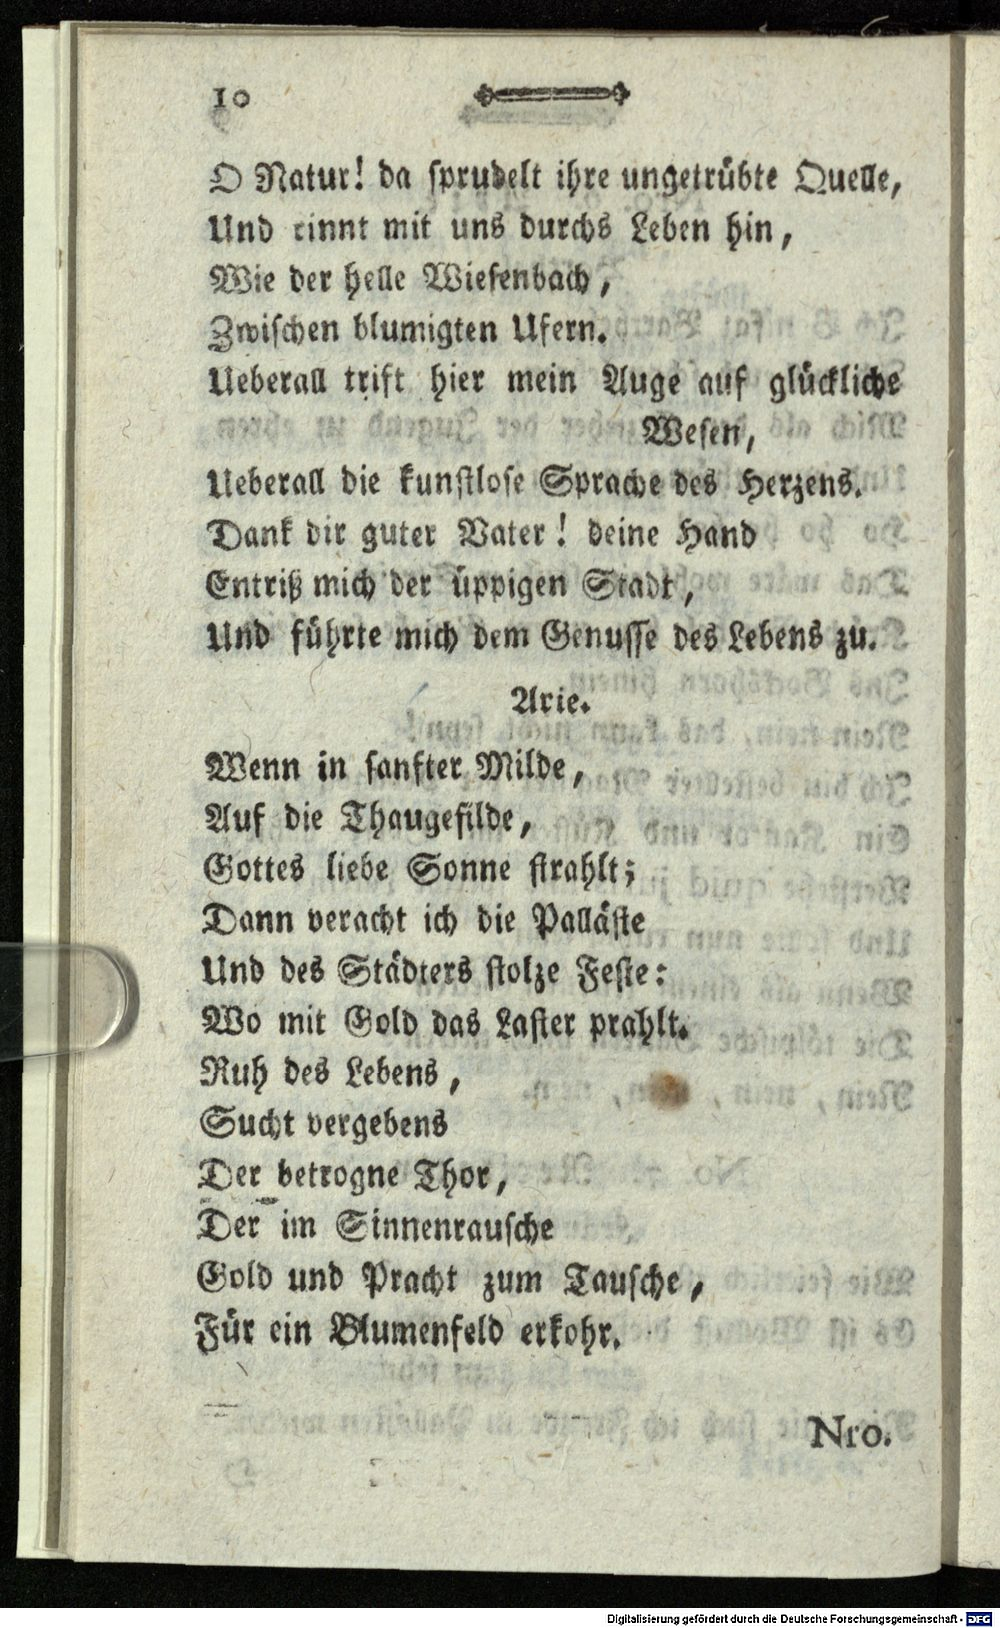 10
O Natur! da sprudelt ihre ungetrübte Quelle,
Und rinnt mit uns durchs Leben hin,
Wie der helle Wiesenbach,
Zwischen blumigten Ufern.
Ueberall trift hier mein Auge auf glückliche
Wesen,
Ueberall die kunstlose Sprache des Herzens.
Dank dir guter Vater! deine Hand
Entriß mich der üppigen Stadt,
Und führte mich dem Genusse des Lebens zu.
Arie.
Wenn in sanfter Milde,
Auf die Thaugefilde,
Gottes liebe Sonne strahlt;
Dann veracht ich die Palläste
Und des Städters stolze Feste:
Wo mit Gold das Laster prahlt.
Ruh des Lebens,
Sucht vergebens
Der betrogne Thor,
Der im Sinnenrausche
Gold und Pracht zum Tausche,
Für ein Blumenfeld erkohr.
Nro.
Digitalisierung gefördert durch die Deutsche Forschungsgemeinschaft - DFG